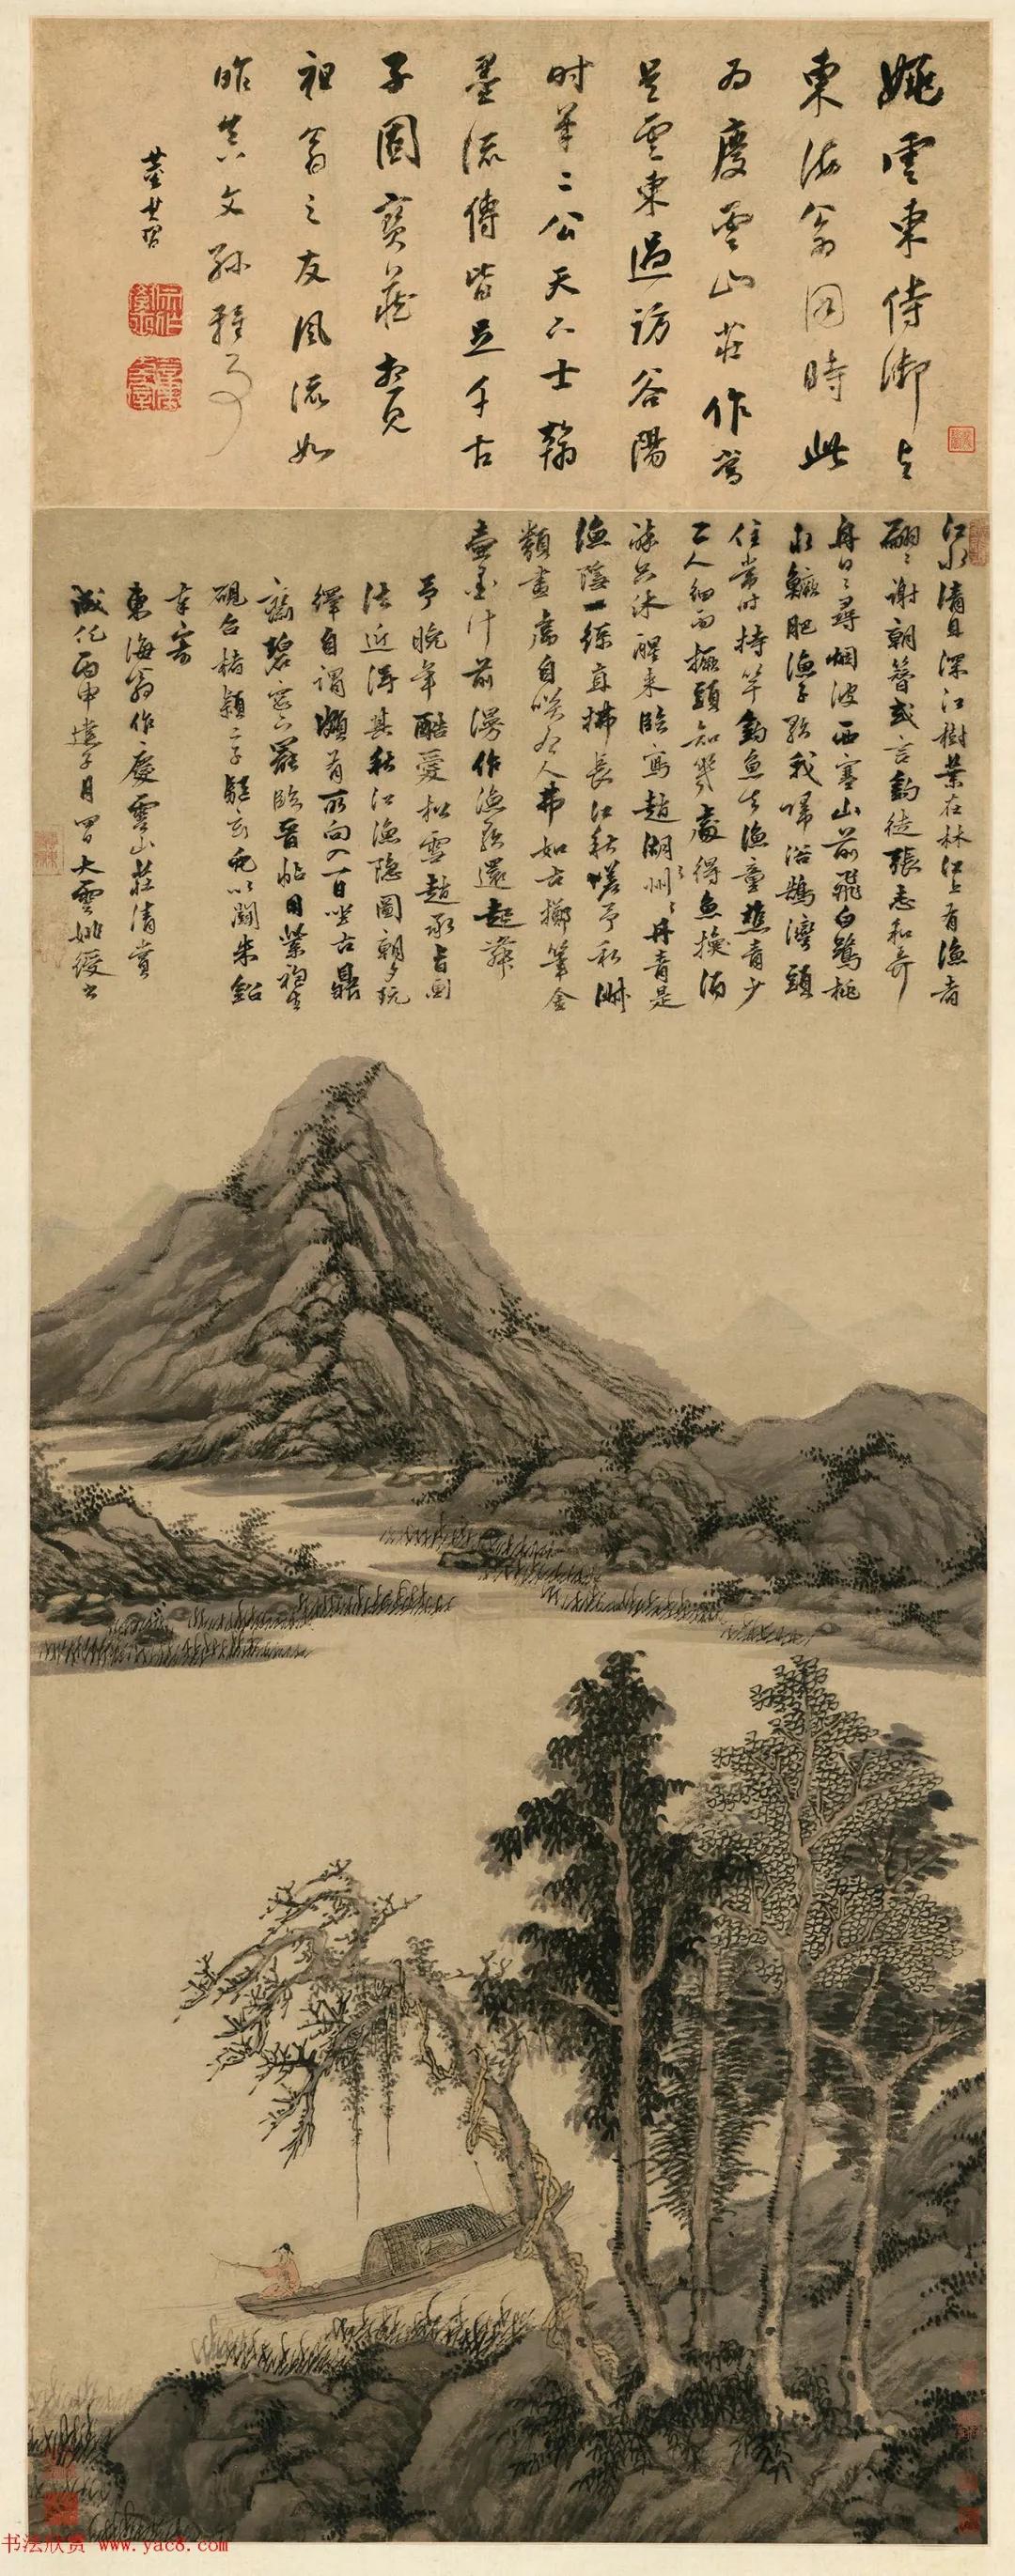 姚雲東侍御與
東海翁同時此
為慶雲山莊作當
是雲東過訪谷陽
時筆二公天下士翰
墨流傳皆足千古
子固寶藏如見
祖翁之友風流如
昨真文孫雅事
董其昌
江水清且深江樹葉在林江上有漁者
翩翩謝朝簪或言釣徒張志和弄
舟日日尋烟波西塞山前飛白鷺桃
花鱖肥漁子歌我歸浴鵠灣頭
住常時持竿釣魚去漁童樵青少
二人細雨撅頭知幾處得魚換酒
醉只沐醒來臨寫趙湖州湖州丹青是
漁隱一綠直拂長江秋嗟予私淑
類畫虎自笑居人弗如古擲筆金
壺墨汁前漫作漁歌還起舞
予晚年酷愛松雪趙承旨画
法近得其秋江漁隐圖朝夕玩
繹自謂頗有所向入一日坐古鼎
齋碧窓下罷臨晋帖用紫袍生
硯合楮穎二子
寄
東海翁作慶雲山莊清賞
成化丙申建子月四日大雲姚綬書
书法欣赏 www.yac8.com